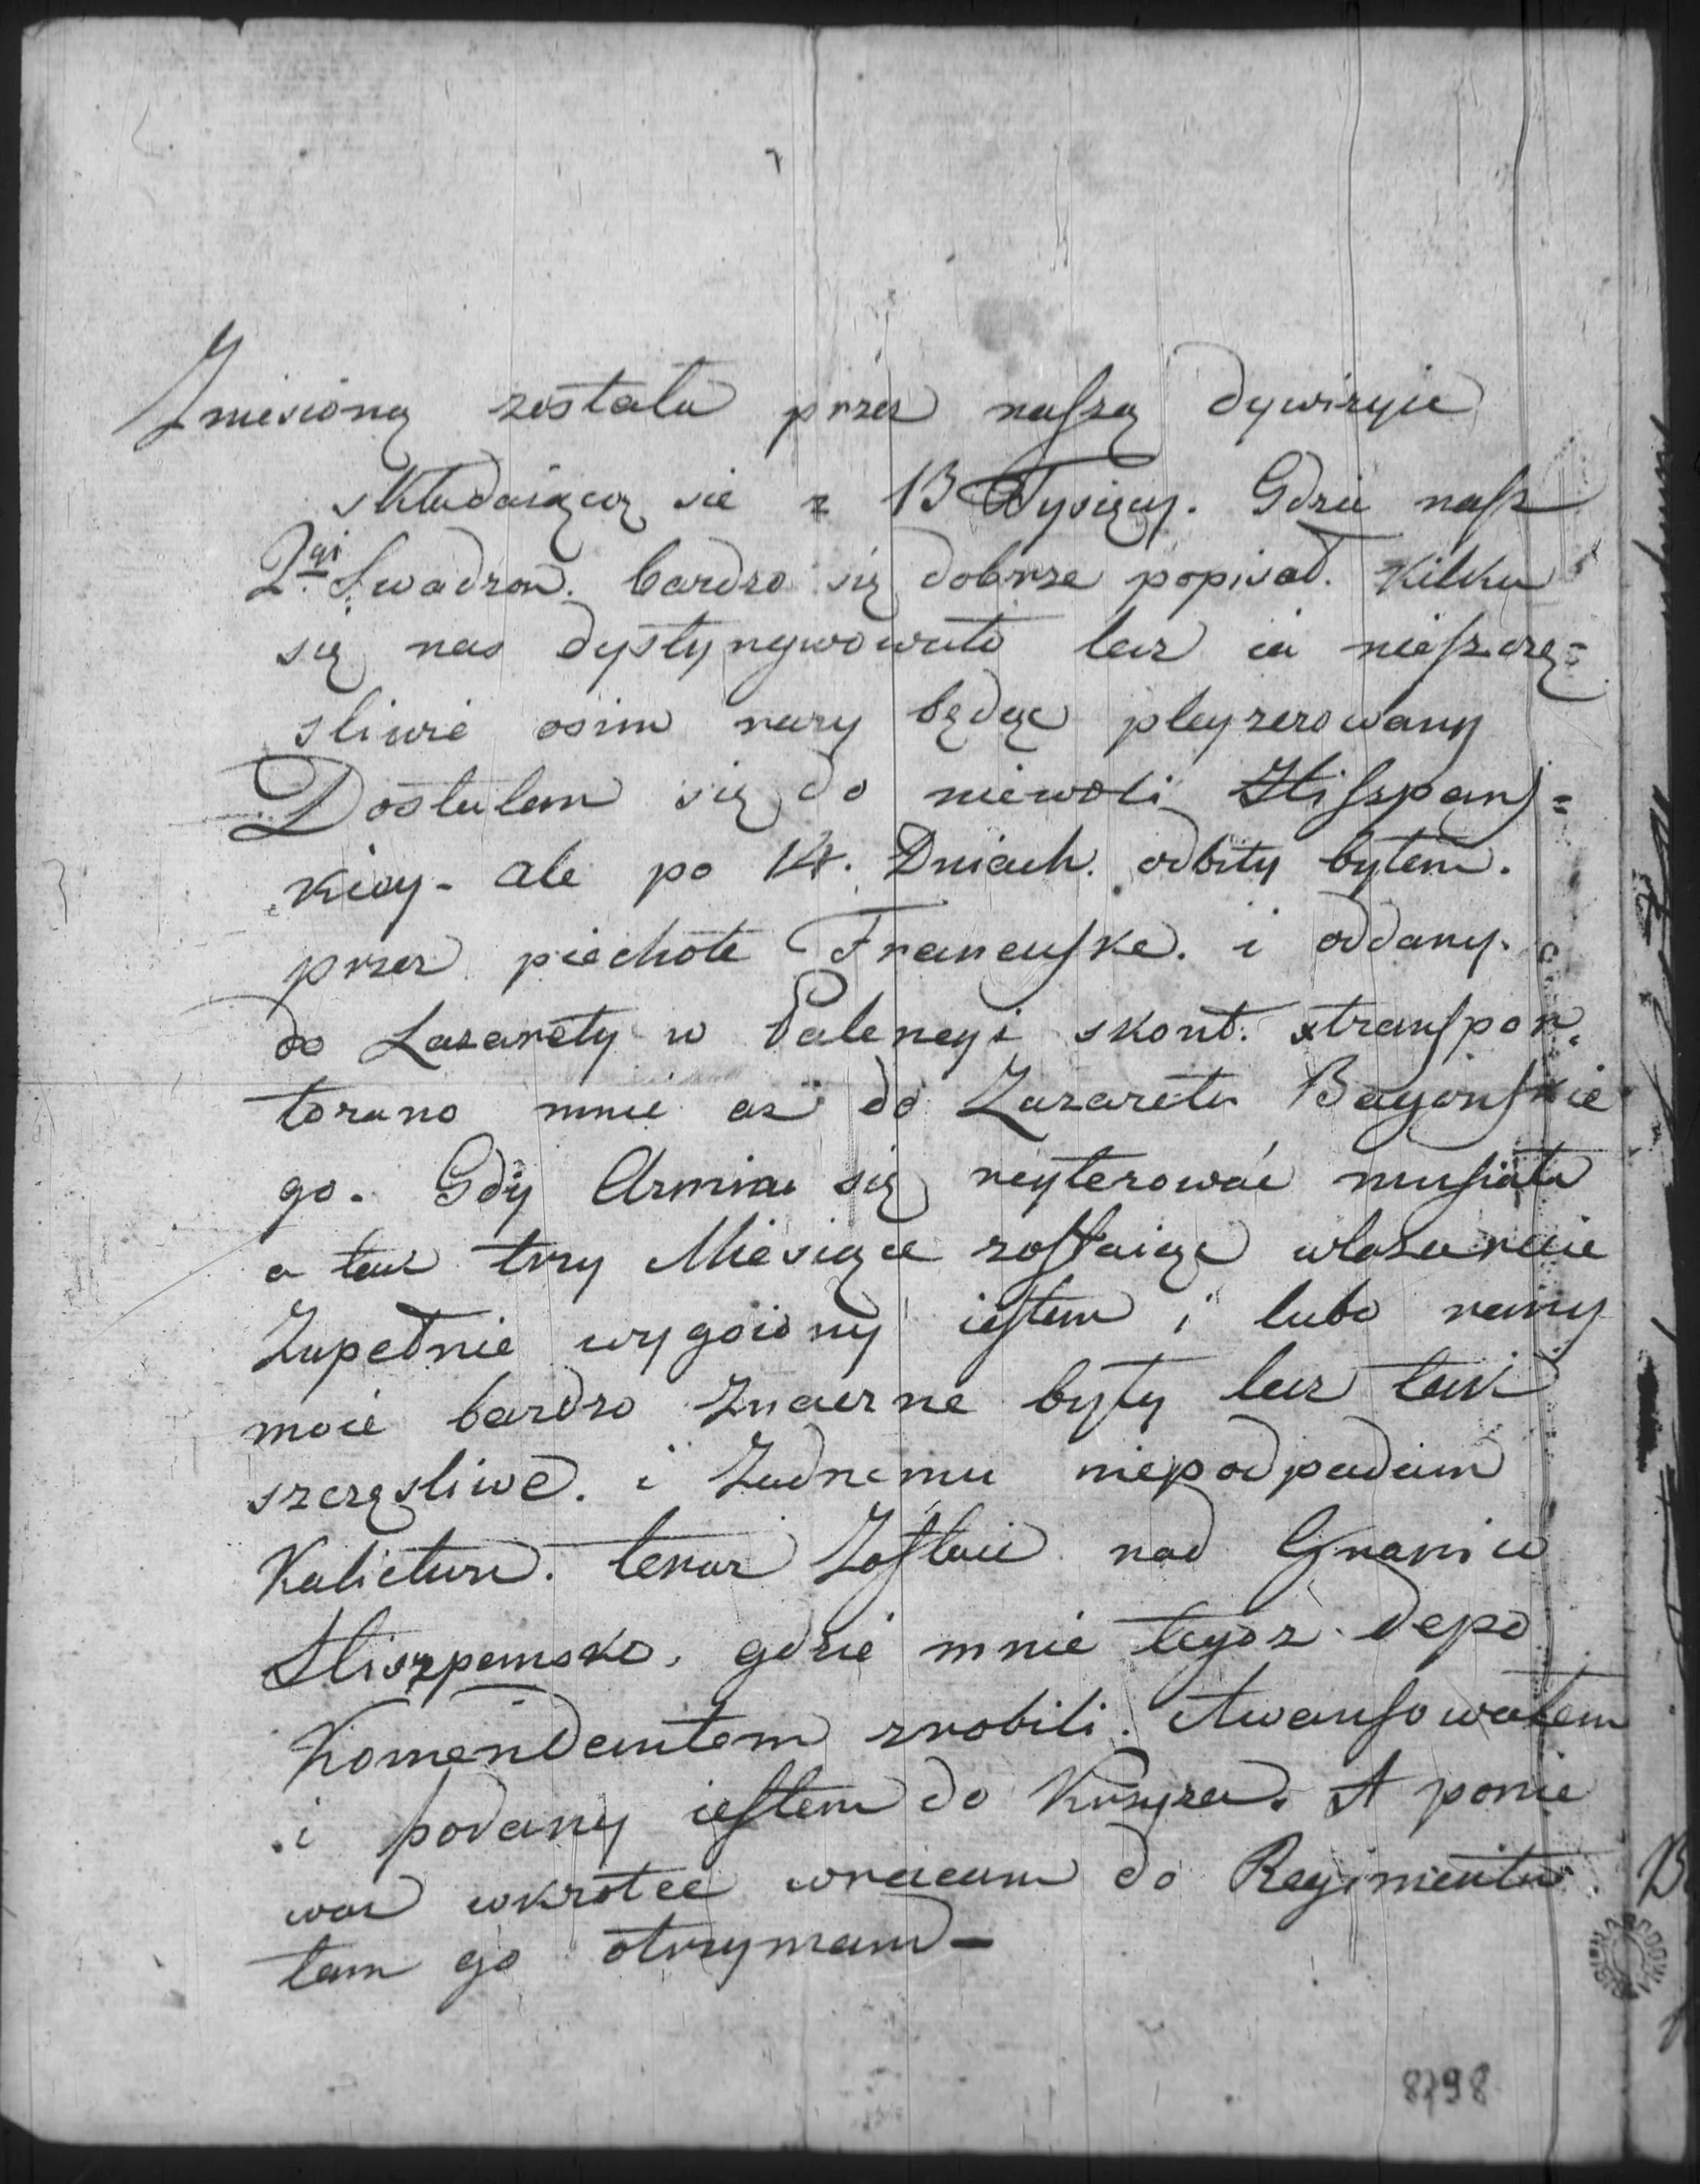 Zniesioną została przez naszą dywizyie
składaiącą sie z 13 Tysięcy. Gdzie nasz
2gi Swadron. bardzo się dobrze popisał. Kilku
się nas dystyngwowało lecz ia nieszczę=
sliwie osim razy będąc pleyzerowany
Dostałem się do niewoli Hiszpans=
kiey. ale po 14. Dniach. odbity byłem.
przez piechote Francuske. i oddany.
do Lazarety w Palencyi skont. transpor,
torano mnie aż do Lazaretu Bayonskie
go. Gdy Armia się reyterować musiała
a tak trzy Miesiące zostaiąc wlazarecie
Zupełnie wygoiony iestem i lubo rany
moie bardzo znaczne były lecz tak
szczęsliwe. i Zadnemu niepodpadam
Kalictwu. teraz Zostaie nad Granicą
Hiszpansko, gdzie mnie tegoz depo
Komendantem zrobili. Awansowałem
i podany iestem do Krzyza. A ponie
waz wkrotce wracam do Regimentu
tam go otrzymam -
8798